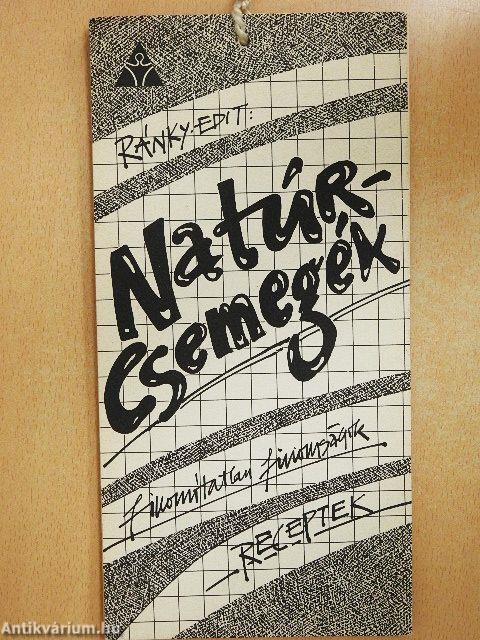 RÁNKY-EDIT:
Natúr-
csemegék
finomítatlan finomságok
RECEPTEK
Antikvárium.hu